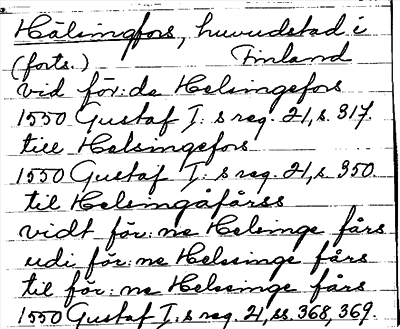 Hälsingfors, huvudstad i
(forts.) Finland
vid för:da Helsingefors
1550 Gustaf I:s reg. 21, s. 317.
till Halsingefors
1550 Gustaf I:s reg. 21, s. 350.
til Helsingåfårss
vidt för:ne Helsinge fårs
udi för:ne Helssinge fårs
til för:ne Helssinge fårs
1550 Gustaf I:s reg. 21, ss. 368, 369.